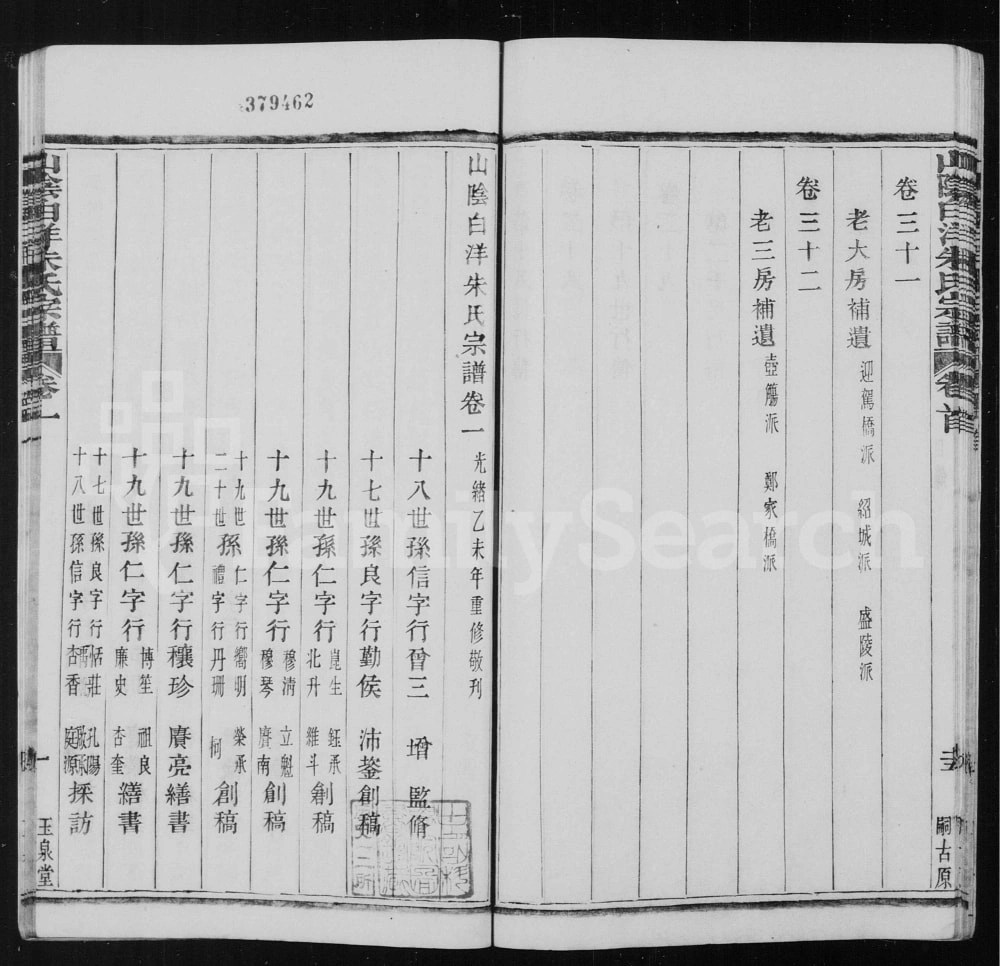 379462
卷三十一
老大房補遺 迎駕橋派 紹城派 盛陵派
卷三十二
老三房補遺 壺觴派 鄭家橋派
嗣古原
山陰白洋朱氏宗譜
山陰白洋朱氏宗譜卷一 光緒乙未年重修敬刊
十八世孫信字行曾三 增 監脩
十七世孫良字行勤侯 沛鋆創稿
十九世孫仁字行崑生 鈺承
北升 維斗 創稿
十九世孫仁字行穆清 立魁
穆琴 賡南 創稿
十九世孫仁字行嚮明 榮承
二十世孫禮字行丹珊 柯 創稿
十九世孫仁字行穰珍 賡亮繕書
十九世孫仁字行博笙 祖良
廉史 杏奎 繕書
十七世孫良字行恬莊 孔陽
十八世孫信字行杏香 庭源 採訪
山陰白洋朱氏宗譜 卷一
一
玉泉堂
FamilySearch